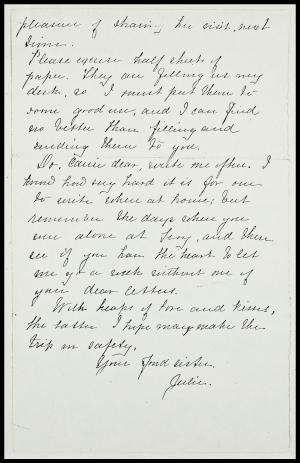 pleasure of sharing the visit, next
time.
Please excuse half sheets of
paper. They are filling up my
desk, so I must put them to
some good use, and I can find
no better than filling and
sending them to you.
So, Carrie dear, write me often. I
know how very hard it is for one
to write when at home; but
remember the days when you
were alone at Troy, and then
see if you have the heart to let
me go a week without one of
your dear letters.
With heaps of love and kisses,
the latter I hope may make the
trip in safety,
Your fond sister
Julie.